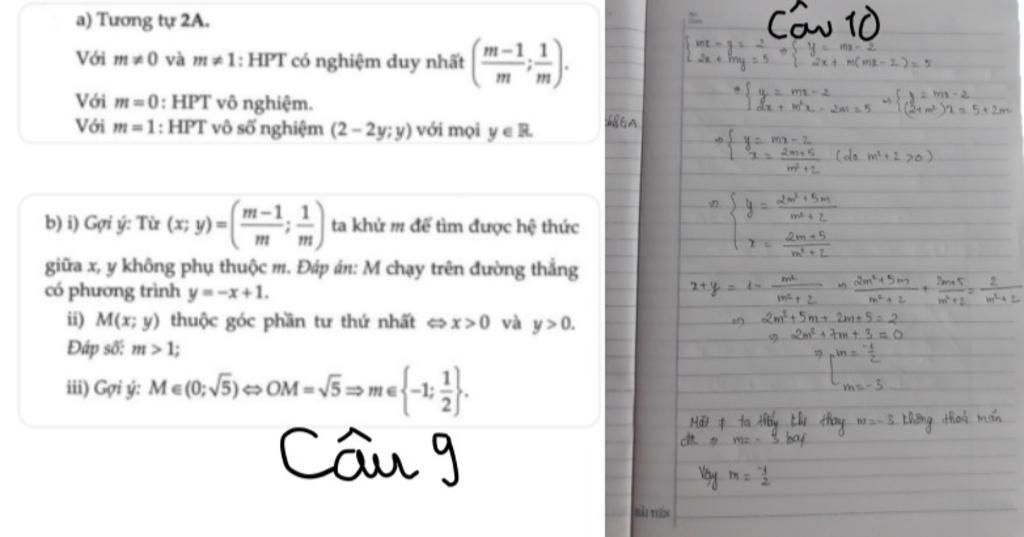 a) Tương tự 2A.
Với m ≠ 0 và m ≠ 1: HPT có nghiệm duy nhất (m−1/m ; 1/m).
Với m = 0: HPT vô nghiệm.
Với m = 1: HPT vô số nghiệm (2 − 2y; y) với mọi y ∈ ℝ.
b) i) Gợi ý: Từ (x; y) = (m−1/m ; 1/m) ta khử m để tìm được hệ thức
giữa x, y không phụ thuộc m. Đáp án: M chạy trên đường thẳng
có phương trình y = −x + 1.
ii) M(x; y) thuộc góc phần tư thứ nhất ⇔ x > 0 và y > 0.
Đáp số: m > 1;
iii) Gợi ý: M ∈ (0; √5) ⇔ OM = √5 ⇒ m ∈ {−1; 1/2}.
Câu 9
Câu 10
{ mx − y = 2 ⇒ { y = mx − 2
2x + my = 5 2x + m(mx − 2) = 5
⇒ { y = mx − 2 ⇒ { y = mx − 2
2x + m²x − 2m = 5 (2 + m²)x = 5 + 2m
⇒ { y = mx − 2
x = 2m+5/m²+2 (do m² + 2 > 0)
⇒ { y = 2m²+5m/m²+2
x = 2m+5/m²+2
x + y = 1 − m²/m²+2 ⇒ 2m²+5m/m²+2 + 2m+5/m²+2 = 2/m²+2
⇒ 2m² + 5m + 2m + 5 = 2
⇒ 2m² + 7m + 3 = 0
⇒ [ m = −1/2
m = −3
ta thấy khi thay m = −3 không thoả mãn
đk ⇒ m = −3
Vậy m = −1/2